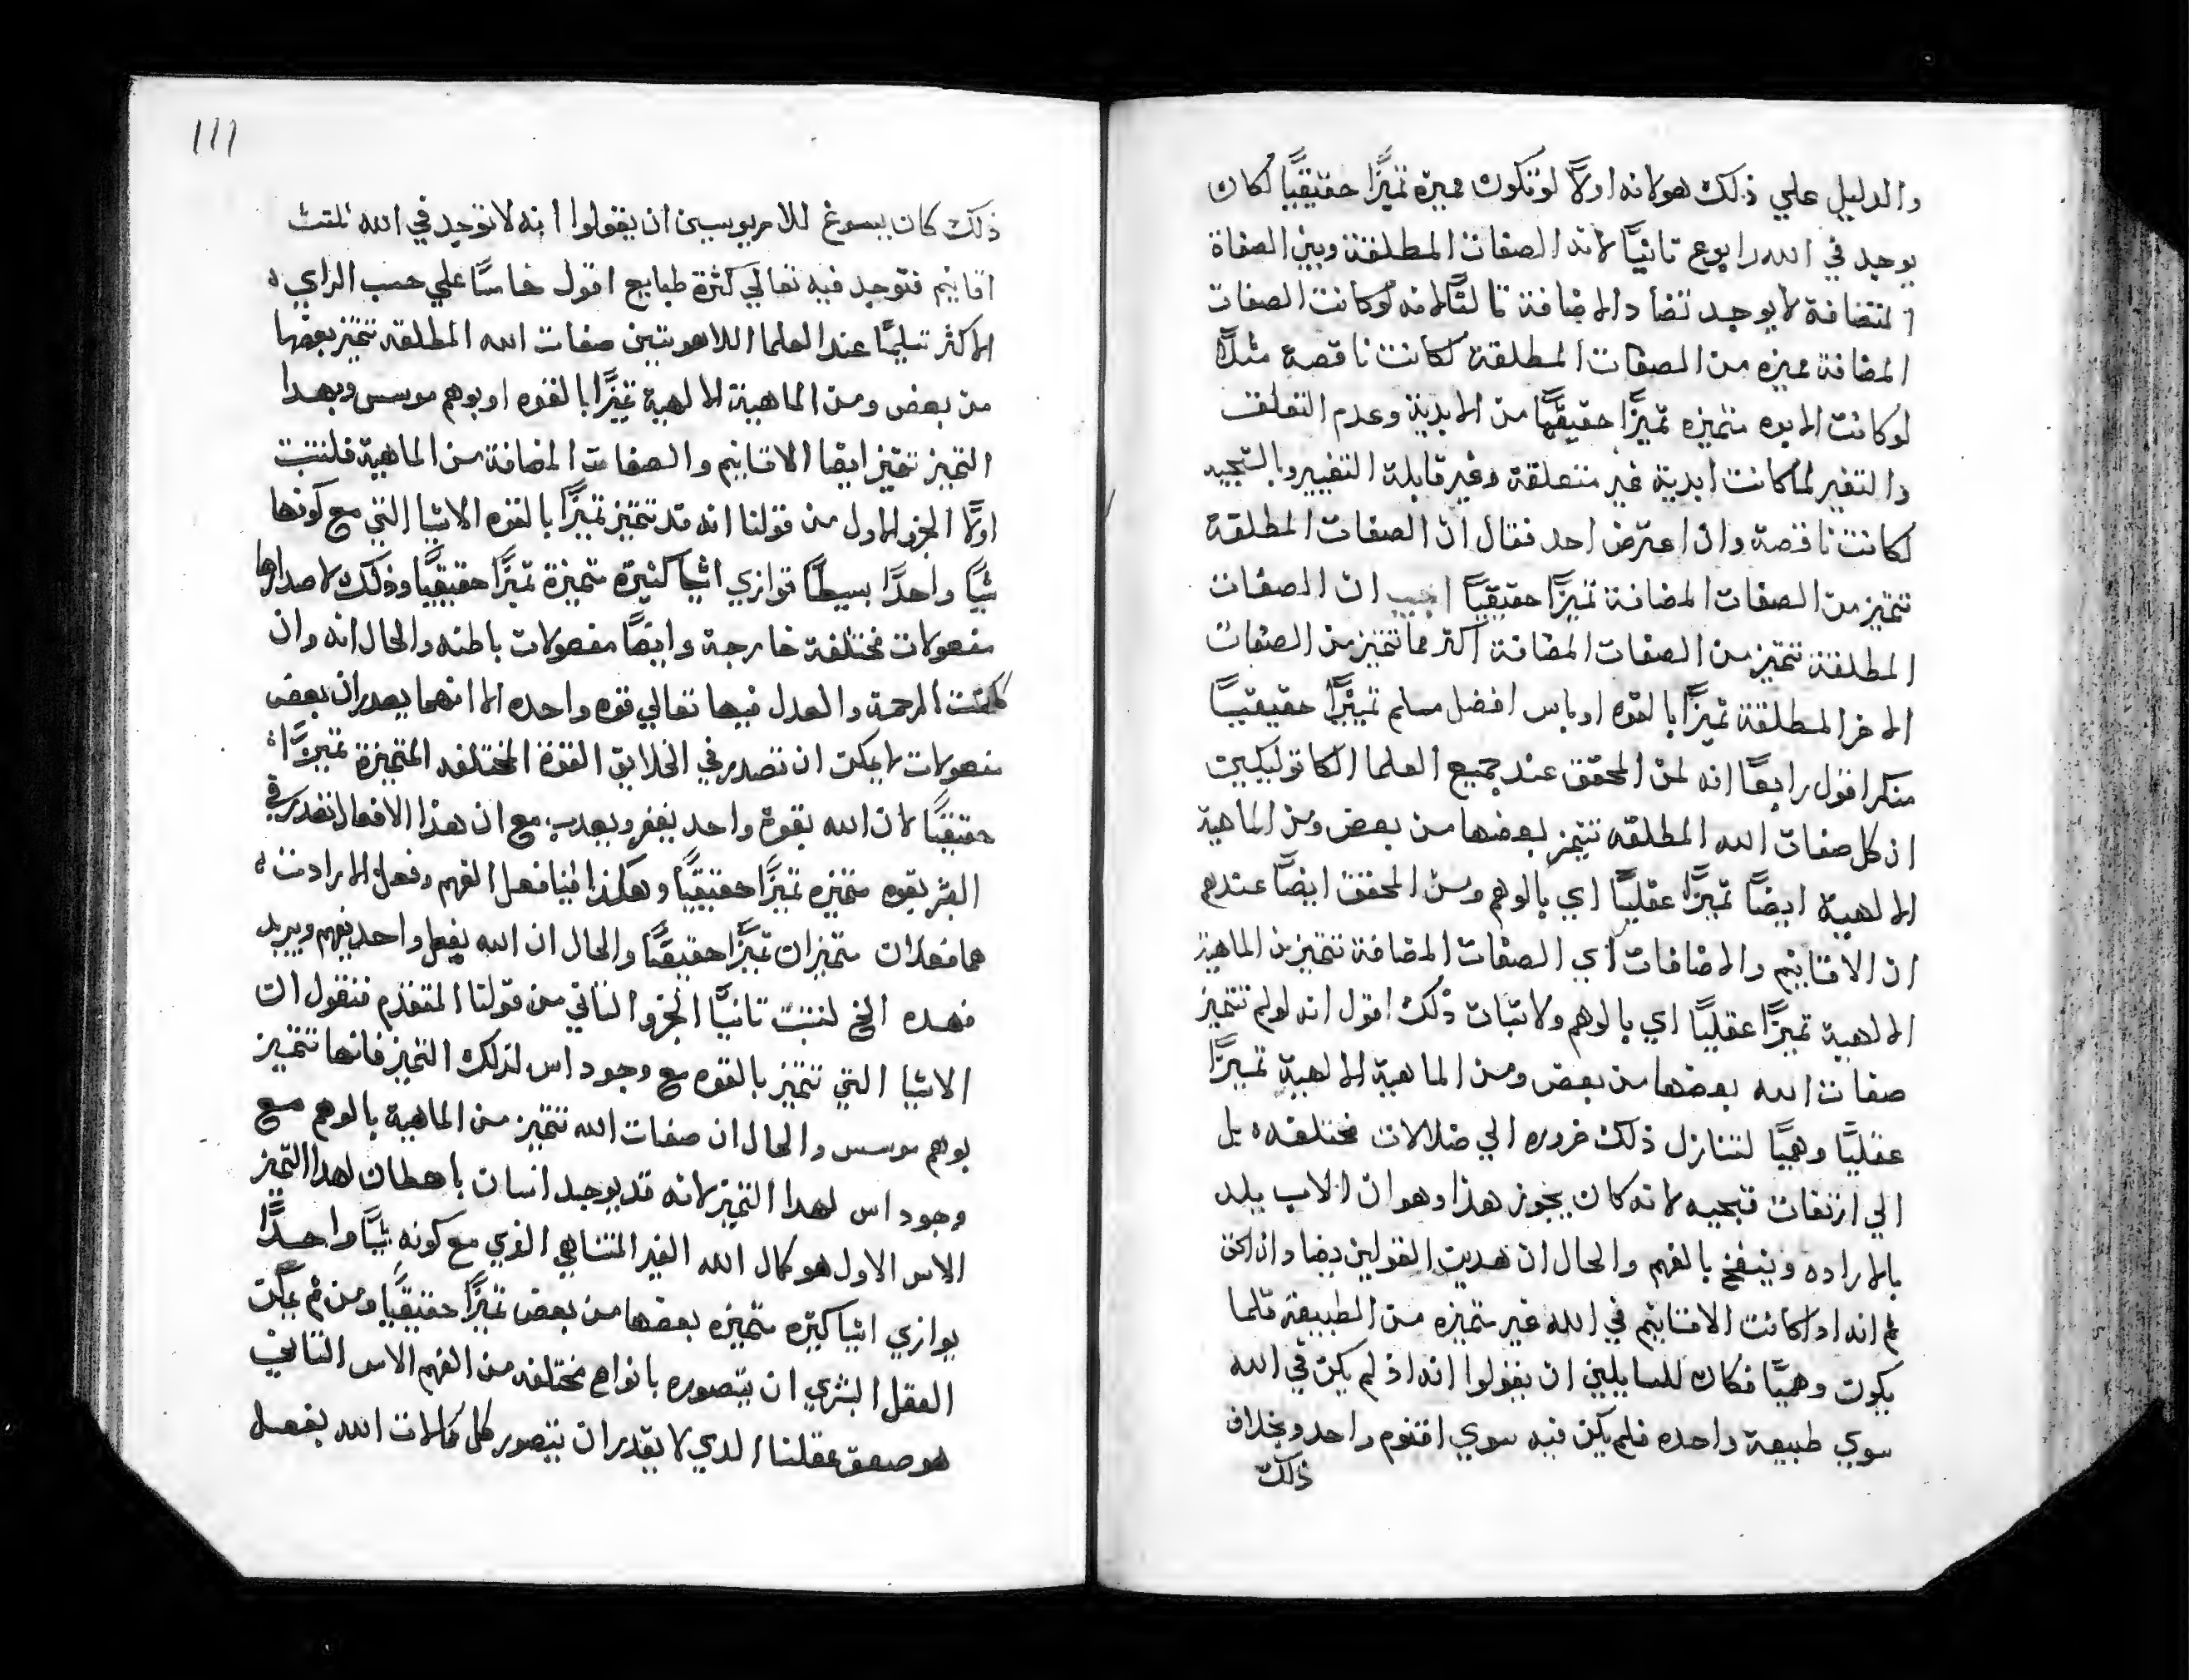 والدليل علي ذلك هو لانه اولًا لو تكون مميزة تميزًا حقيقيًا لكان
يوجد في الله رابوع ثانيًا لانه الصفات المطلقة وبين الصفاة
المتضافة لا يوجد تضاد الاضافة ثالثًا لانه لو كانت الصفات
المضافة مميزه من الصفات المطلقة لكانت ناقصة مثلًا
لو كانت الابوه متميزه تميزًا حقيقيًا من الابدية وعدم التعلق
والتغير لما كانت ابدية غير متعلقة وغير قابلة التغيير وبالنتيجه
لكانت ناقصة وان اعترض احد فقال ان الصفات المطلقة
تتميز من الصفات المضافة تميزًا حقيقيًا اجيب ان الصفات
المطلقة تتميز من الصفات المضافة اكثر مما تتميز من الصفات
الاخر المطلقة تميزًا بالقوه او باس افضل مسلم تميزًا حقيقيًا
منكر اقول رابعًا انه لمن المحقق عند جميع العلما الكاتوليكيين
ان كل صفات الله المطلقه تتميز بعضها من بعض ومن الماهية
الالهية ايضًا تميزًا عقليًا اي بالوهم ومن المحقق ايضًا عندهم
ان الاقانيم والاضافات اي الصفات المضافة تتميز من الماهية
الالهية تميزًا عقليًا اي بالوهم ولاثبات ذلك اقول انه لو لم تتميز
صفات الله بعضها من بعض ومن الماهية الالهية تميزًا
عقليًا وهميًا لتنازل ذلك ضروره الي ضلالات مختلفه بل
الي ارتقات قبحيه لانه كان يجوز هذا وهو ان الاب يلد
بالاراده وينفخ بالفهم والحال ان هدين القولين رفضا وانكن
ثم انه ادا كانت الاقانيم في الله غير متميزه من الطبيعة قلما
يكون وهميًا فكان للسايلين ان يقولوا انه اذ لم يكن في الله
سوي طبيعة واحده فلم يكن فيه سوي اقنوم واحد وبخلاف
ذلك
111
ذلك كان يسوغ للاريوسيين ان يقولوا انه لا توجد في الله ثلثت
اقانيم فتوجد فيه تعالي كثرة طبايع اقول خامسًا علي حسب الراي
الاكثر تسليمًا عند العلما اللاهوتيين صفات الله المطلقه تتميز بعضها
من بعض ومن الماهية الالهية تميزًا بالقوه او بوهم موسس وبهدا
التميز تتميز ايضا الاقانيم والصفات المضافة من الماهية فلنثبت
اولًا الجزو الاول من قولنا انه قد تتميز تميزًا بالقوه الاشيا التي مع كونها
شيًا واحدًا بسيطًا توازي اشيا كثيرة متميزة تميزًا حقيقيًا وذلك لاصدارها
مفعولات مختلفة خارجة وايضًا مفعولات باطنه والحال انه وان
كانت الرحمة والعدل فيها تعالي قوه واحده الا انهما يصدران بعض
مفعولات لا يمكن ان تصدر في الخلايق القوة المختلفه المتميزة تميزًا
حقيقيًا لان الله بقوة واحد يغفر ويعدب مع ان هذا الافعال تصدر في
البشر بقوه متميزه تميزًا حقيقيًا وهكذا فينا فعل الفهم وفعل الارادت
هما فعلان متميزان تميزًا حقيقيًا والحال ان الله بفعل واحد يفهم ويريد
فهده الخ لنثبت ثانيًا الجزو الثاني من قولنا المتقدم فنقول ان
الاشيا التي تتميز بالقوه مع وجود اس لذلك التميز فانها تتميز
بوهم موسس والحال ان صفات الله تتميز من الماهية بالوهم مع
وجود اس لهدا التميز لانه قد يوجد اسان باهطان لهدا التميز
الاس الاول هو كمال الله الغير المتناهي الذي مع كونه شيًا واحدًا
يوازي اشيا كثيره متميزه بعضها من بعض تميزًا حقيقيًا ومن ثم يمكن
العقل البشري ان يتصوره بانواع مختلفه من الفهم الاس الثاني
هو ضعف عقلنا الدي لا يقدر ان يتصور كل كمالات الله بفعل